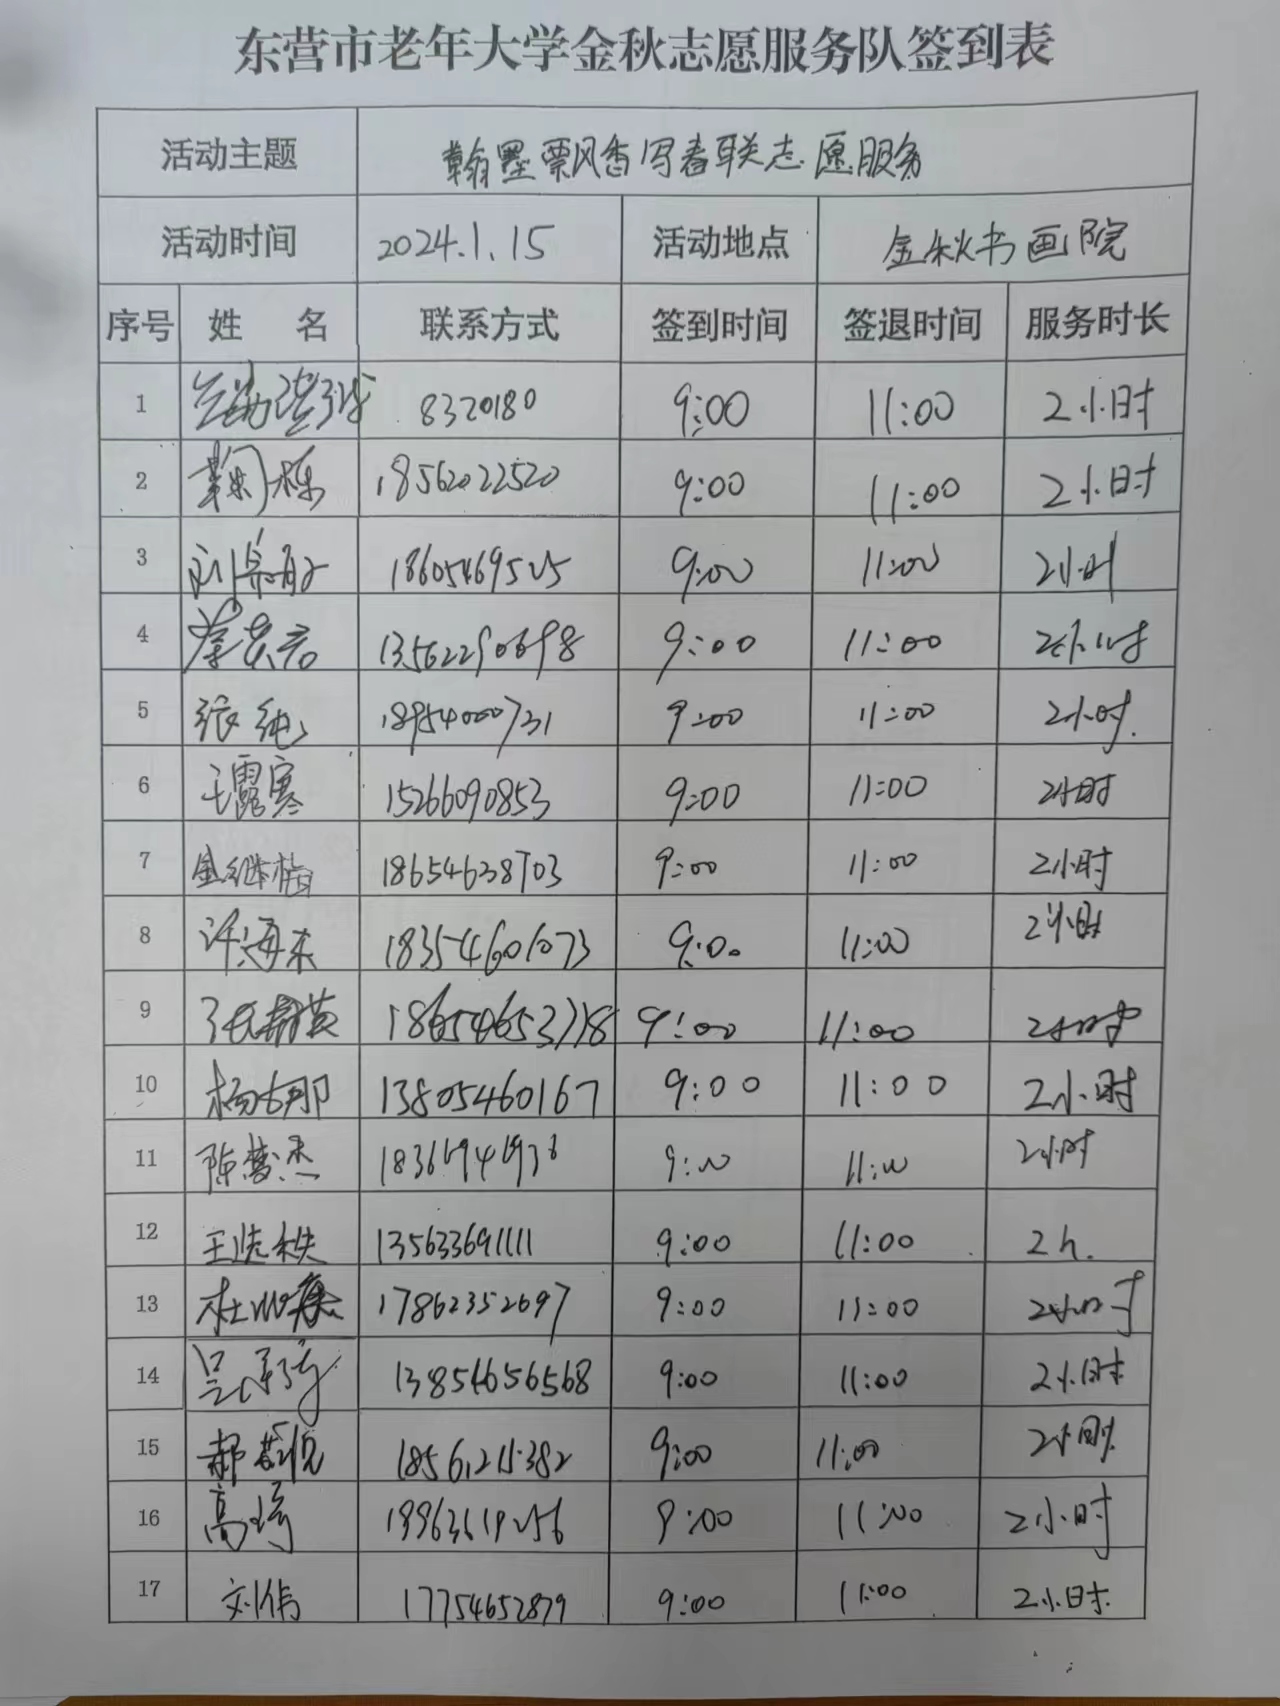 东营市老年大学金秋志愿服务队签到表
活动主题 翰墨飘香写春联志愿服务
活动时间 2024.1.15 活动地点 金秋书画院
序号 姓 名 联系方式 签到时间 签退时间 服务时长
1 8320180 9:00 11:00 2小时
2 鞠栋 18562022520 9:00 11:00 2小时
3 9:00 11:00 2小时
4 13562290698 9:00 11:00 2小时
5 张纯 18954000731 9:00 11:00 2小时.
6 王露寒 15266090853 9:00 11:00 2小时
7 金继梅 18654638703 9:00 11:00 2小时
8 许海东 18354601073 9:00 11:00 2小时
9 9:00 11:00 2小时
10 杨娜 13805460167 9:00 11:00 2小时
11 9:00 11:00 2小时
12 135633691111 9:00 11:00 2h.
13 17862352697 9:00 11:00 2小时
14 13854656568 9:00 11:00 2小时
15 9:00 11:00 2小时
16 高琦 9:00 11:00 2小时
17 刘伟 17754652879 9:00 11:00 2小时